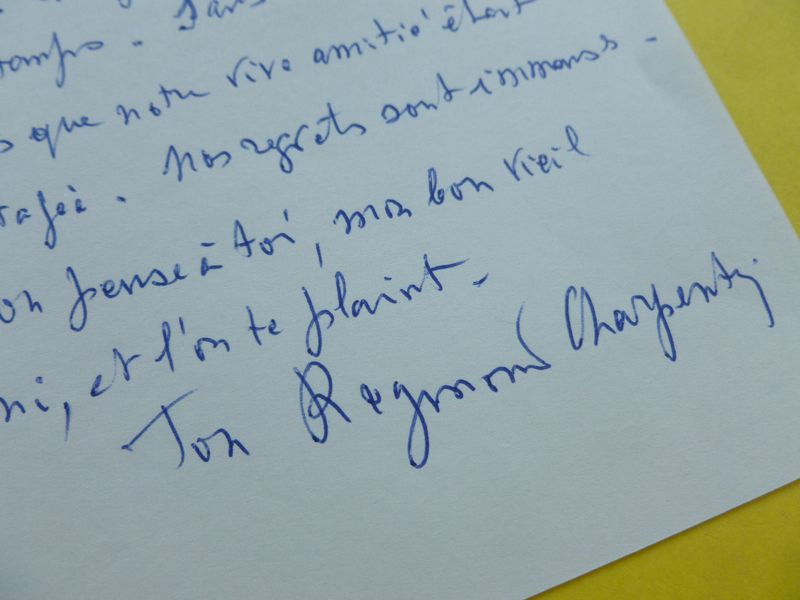 temps. Sans
que notre vive amitié étant
. Nos regrets sont immenses.
on pense à toi, mon bon vieil
mi, et l'on te plaint.
Ton Raymond Charpentier